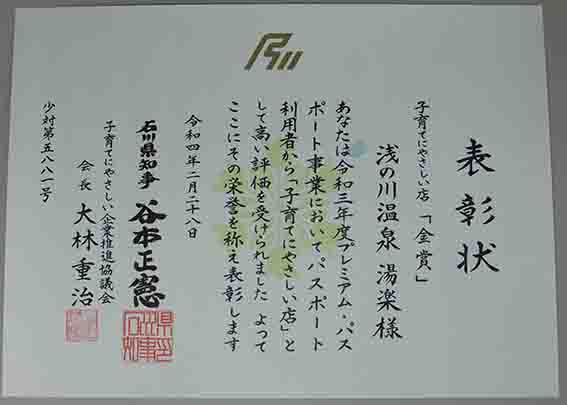 表彰状
子育てにやさしい店「金賞」
浅の川温泉 湯楽様
あなたは令和三年度プレミアム・パス
ポート事業においてパスポート
利用者から「子育てにやさしい店」と
して高い評価を受けられました よって
ここにその栄誉を称え表彰します
令和四年二月二十八日
石川県知事 谷本正憲
子育てにやさしい企業推進協議会
会長 大林重治
少対第五八八一号